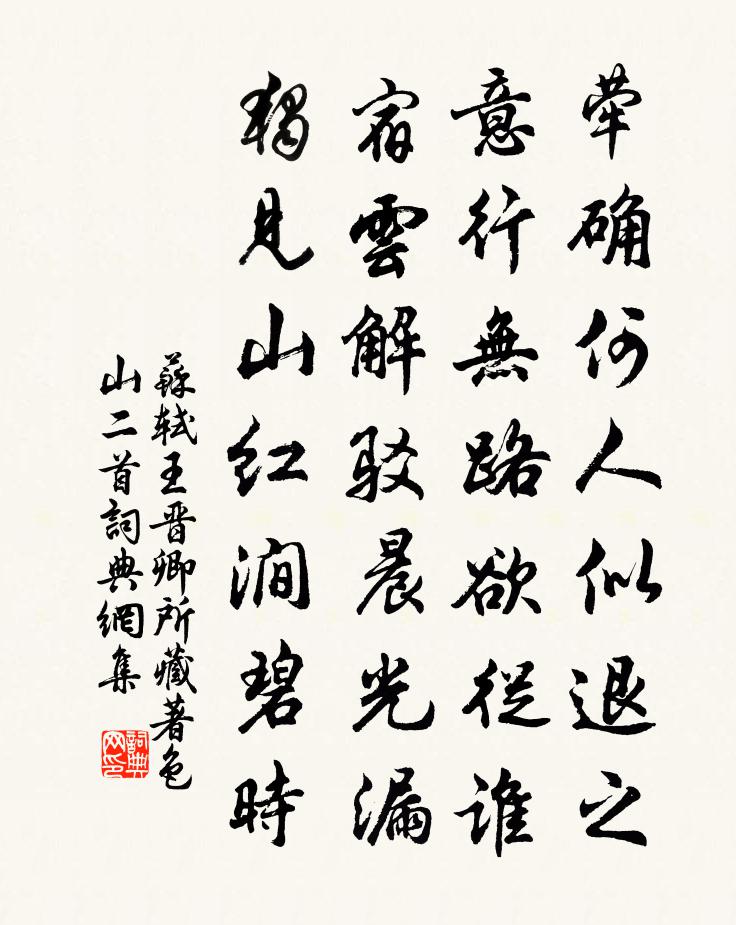 荦确何人似退之
意行無路欲從誰
宿雲解駁晨光漏
獨見山紅澗碧時
蘇軾王晋卿所藏著色
山二首詞典網集
詞典
网印